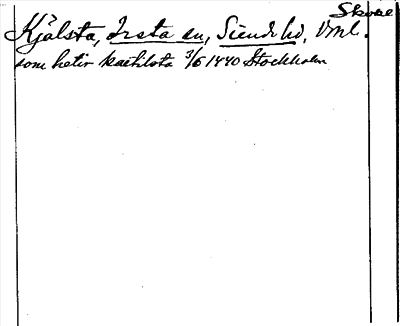 Skokl
Kjälsta, Irsta sn, Siende hd, Vml.
som hetir kætilsta 3/6 1440 Stockholm